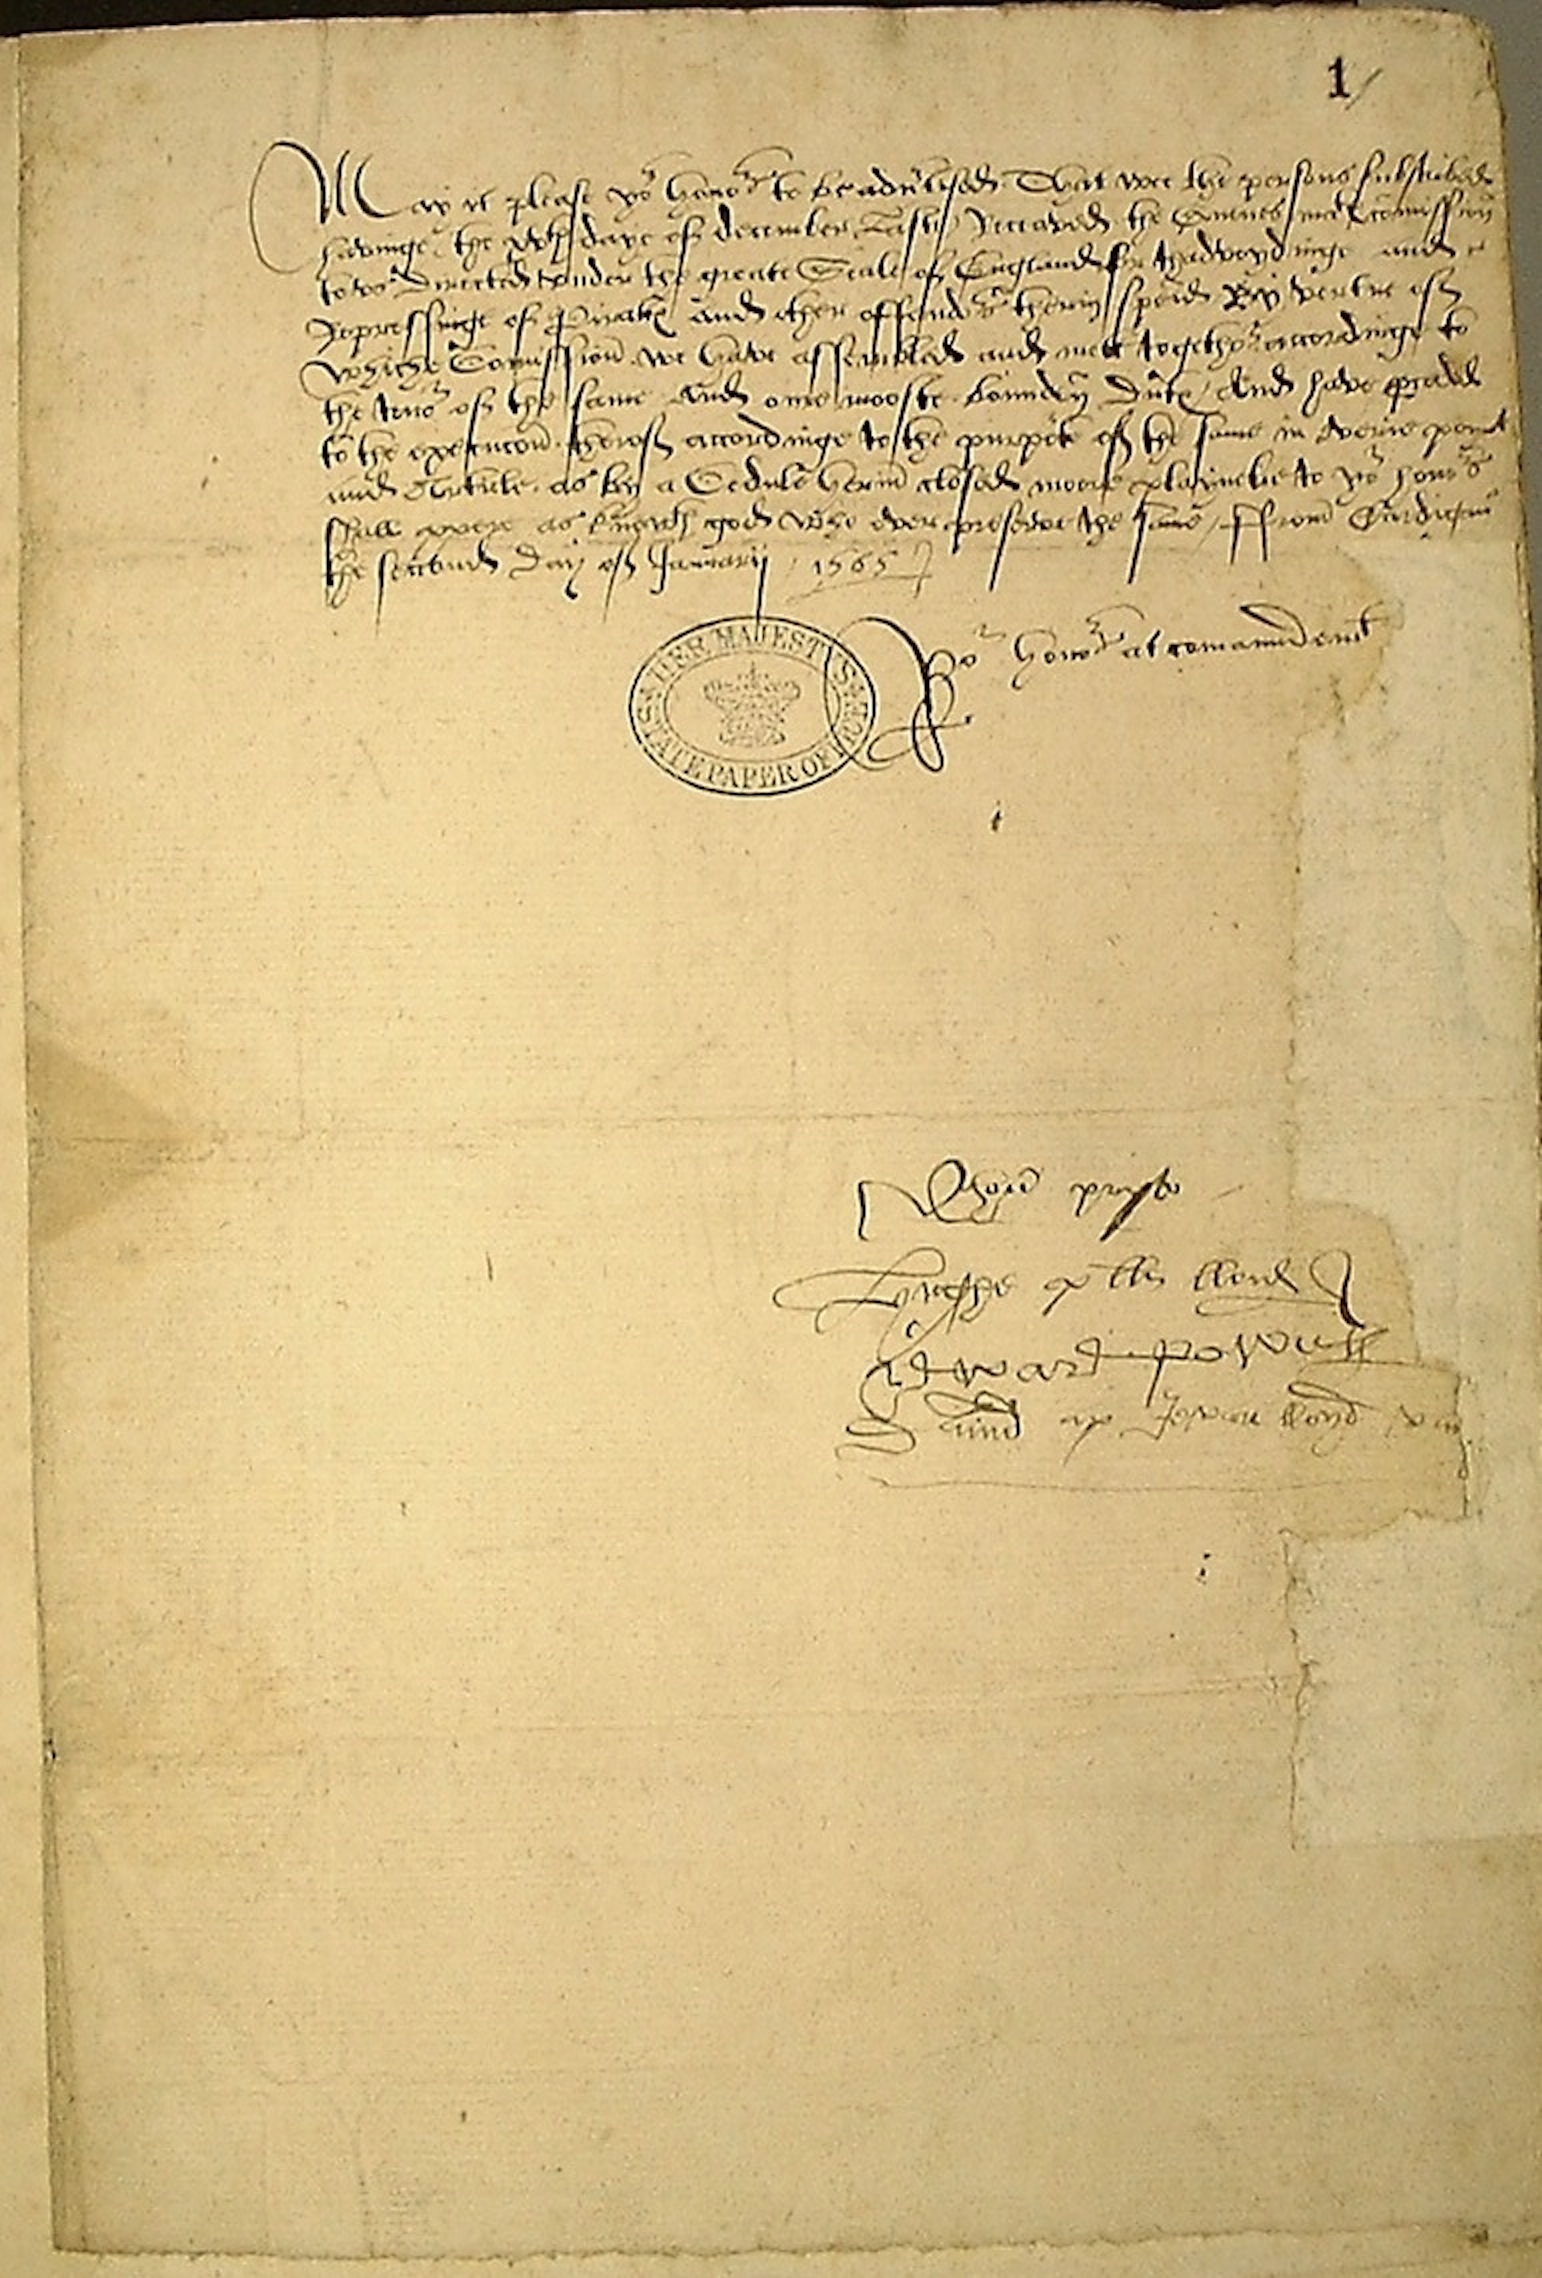 1
May it please yor honors to be advertised That wee the persons subscribed
havinge the xvth daye of december Laste Receaved the Quenes mats Comission
to us Directed under the greate Seale of England for thadvoydinge and
Repressinge of Pirates and other offendors therin specified By vertue of
whiche Comission we have assembled and mett together accordinge to
the tenor of the same And oure mooste bounden Dutie And have
to the execucon therof accordinge to the purporte of the same in everie point
and Article as by a Sedule herin closed moore playnelie to yor honors
shall appere as knoweth god who ever preserve the same From Cardigan
the second Day of January 1565
Yor honors at comaundement
HER MAJESTY'S STATE PAPER OFFICE
pryse
lloyd
Edward powell
ap Jevan lloyd